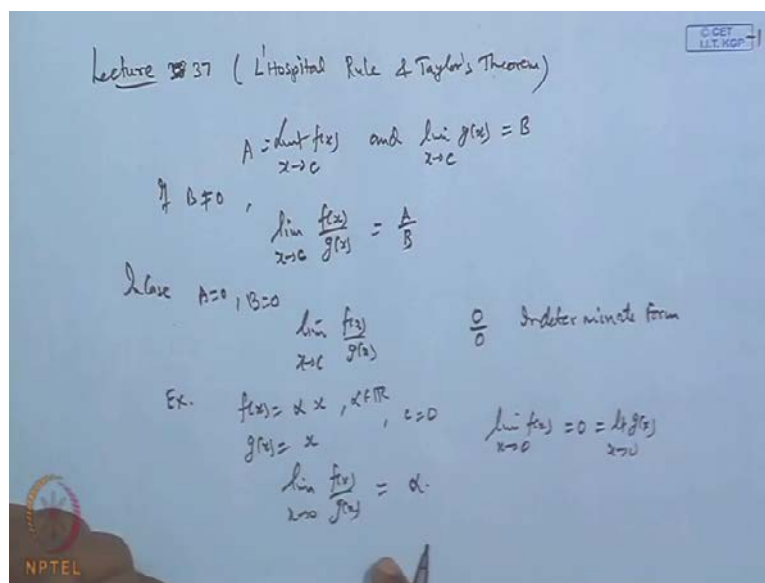 © CET
I.I.T. KGP
Lecture 37 ( L'Hospital Rule & Taylor's Theorem)
A = limt f(x) and lim g(x) = B
x→c x→c
If B≠0 ,
lim f(x)/g(x) = A/B
x→c
In Case A=0, B=0
lim f(x)/g(x) 0/0 Indeterminate form
x→c
Ex. f(x)= α x , α∈ℝ
g(x)= x , c=0 lim f(x) =0 = lt g(x)
x→0 x→0
lim f(x)/g(x) = α.
x→0
NPTEL